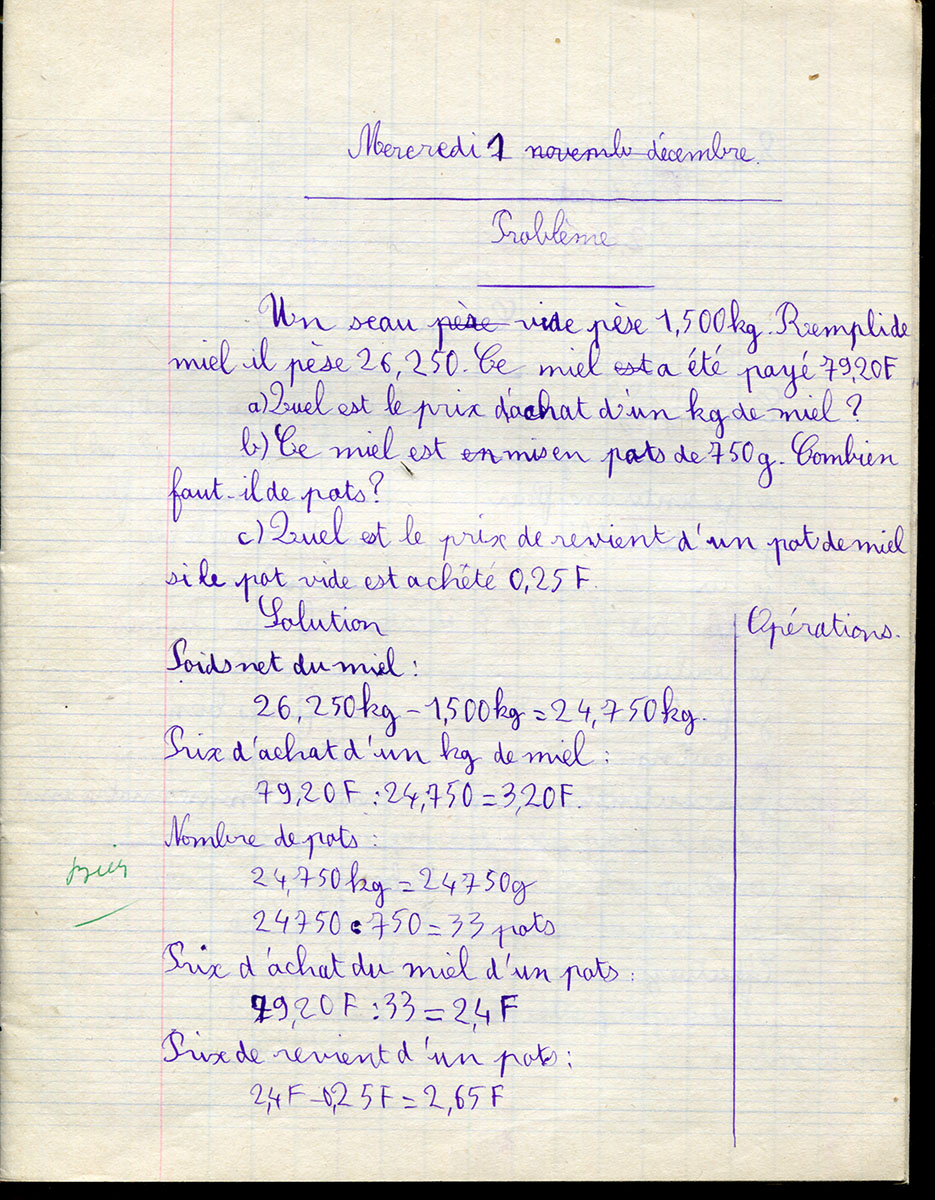 Mercredi 1 novemb décembre.
Problème
Un seau pèse vide pèse 1,500kg. Rempli de
miel il pèse 26,250. Ce miel est a été payé 79,20F
a) Quel est le prix d'achat d'un kg de miel ?
b) Ce miel est en mis en pots de 750g. Combien
faut-il de pots ?
c) Quel est le prix de revient d'un pot de miel
si le pot vide est acheté 0,25F.
Solution
Opérations.
Poids net du miel :
26,250kg - 1,500kg = 24,750kg.
Prix d'achat d'un kg de miel :
79,20F : 24,750 = 3,20F
Nombre de pots :
24,750kg = 24750g
24750 : 750 = 33 pots
Prix d'achat du miel d'un pots :
79,20F : 33 = 2,4F
Prix de revient d'un pots :
2,4F - 0,25F = 2,65F